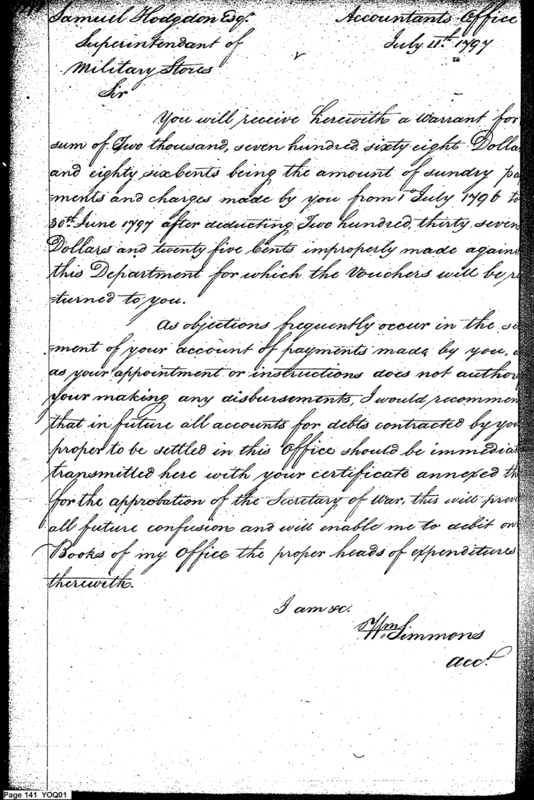 Samuel Hodgdon Esqr. Accountants Office
Superintendant of July 11th. 1797
Military Stores
Sir
You will receive herewith a Warrant for
sum of Two thousand, seven hundred, sixty eight Dolla
and eighty six Cents being the amount of sundry pa
ments and charges made by you from 1st July 1796 to
30th June 1797 after deducting Two hundred, thirty seven
Dollars and twenty five Cents improperly made agains
this Department for which the Vouchers will be re
turned to you.
As objections frequently occur in the se
ment of your account of payments made by you,
as your appointment or instructions does not author
your making any disbursements, I would recommen
that in future all accounts for debts contracted by you
proper to be settled in this Office should be immediat
transmitted here with your certificate annexed th
for the approbation of the Secretary of War, this will prev
all future confusion and will enable me to debit on
Books of my Office the proper heads of expenditures
therewith.
I am &c.
Wm. Simmons
Acct.
Page 141 YOQ01